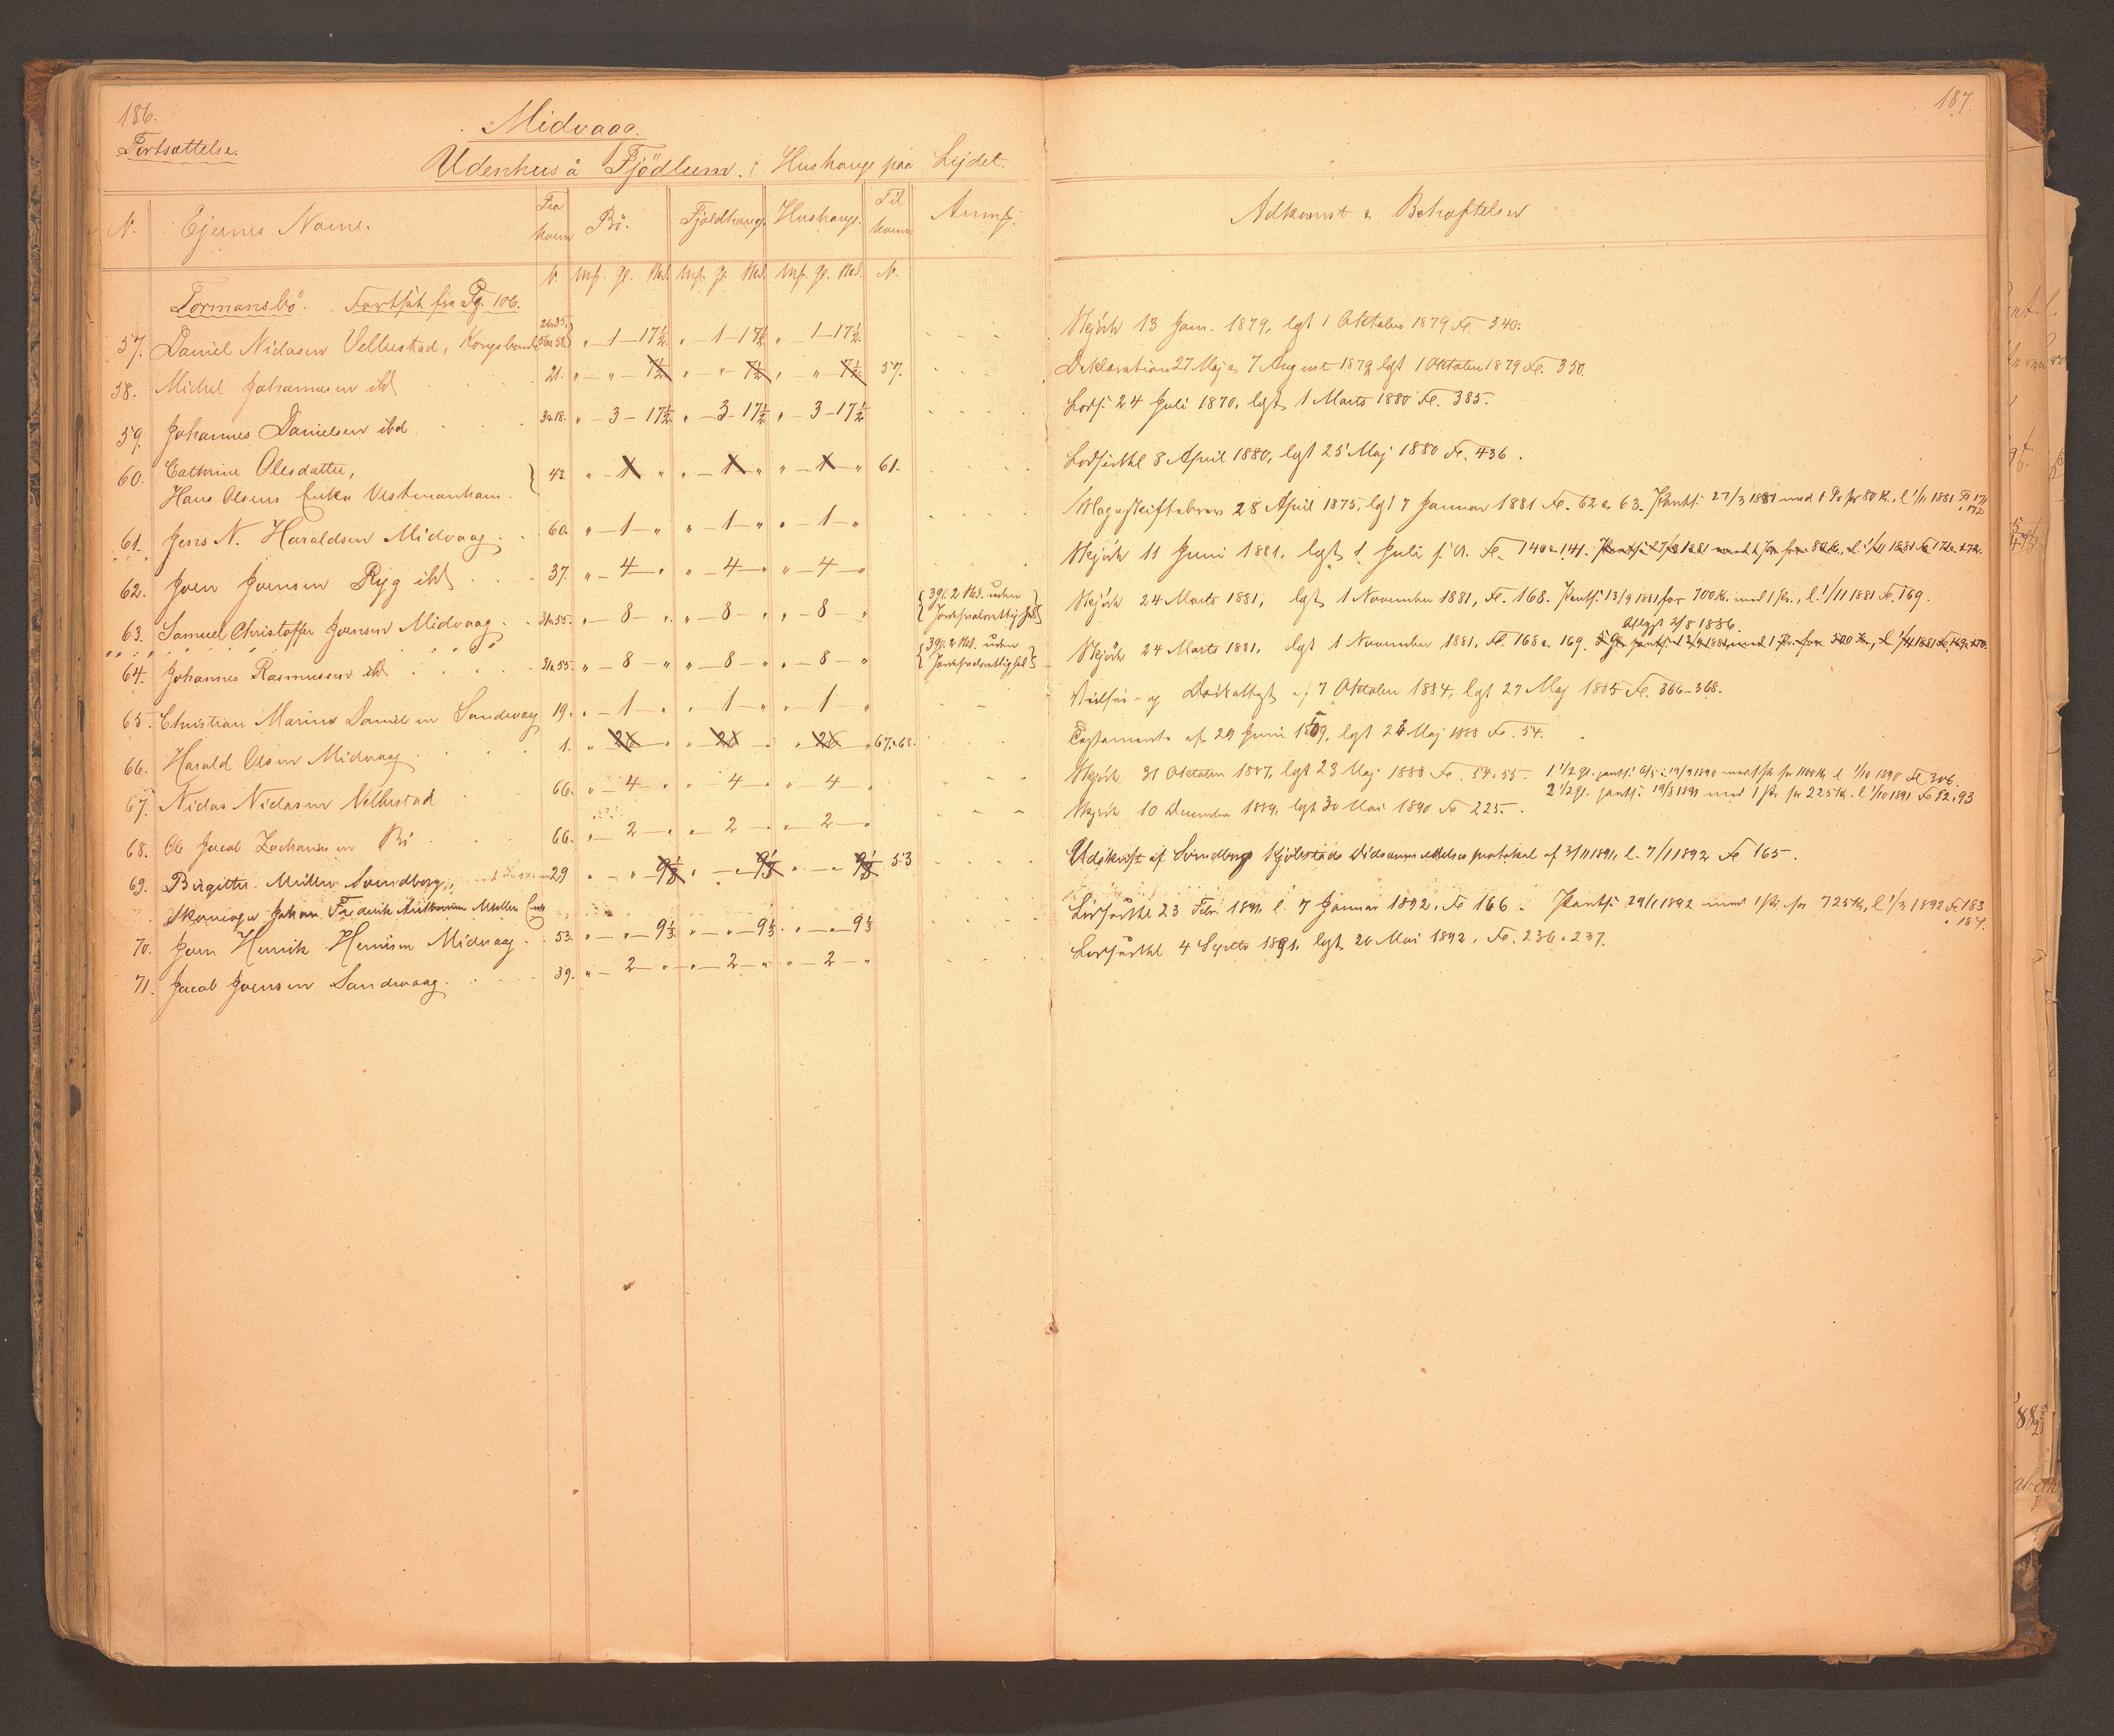 186.
Fortsættelse.
Midvaag.
Udenhus á Fjödlum. : Hushauge paa Lejdet.
No. Ejernes Navne. Fra havn Bö. Fjeldhauge. Hushauge. Til havn Anmf.
N. Mk. Gl. Skd. Mk. Gl. Skd. Mk. Gl. Skd. N.
Tormansbö. Fortsat fra Pg. 106.
57. Daniel Niclasen Velbestad, Kongsbonde 26.35. 56 & 58 } „ - 1 - 17½ „ - 1 - 17½ „ - 1 - 17½
58. Michel Johannesen ibd 21. „ - „ - 7½ „ - „ - 7½ „ - „ - 7½ 57.
59. Johannes Danielsen ibd 3 & 18. „ - 3 - 17½ „ - 3 - 17½ „ - 3 - 17½
60. Cathrine Olesdatter,
Hans Olsens Enke Vestmanhavn. } 43 „ - 1 - „ „ - 1 - „ „ - 1 - „ 61.
61. Jens N. Haraldsen Midvaag. 60. „ - 1 - „ „ - 1 - „ „ - 1 - „
62. Joen Joensen Ryg ibd 37. „ - 4 - „ „ - 4 - „ „ - 4 - „
63. Samuel Christoffer Joensen Midvaag. 31 & 55. „ - 8 - „ „ - 8 - „ „ - 8 - „ { 3 gl. 2 Skd. uden
64. Johannes Rasmussen ibd 31 & 55. „ - 8 - „ „ - 8 - „ „ - 8 - „ { 3 gl. 2 Skd. uden
65. Christian Marius Danielsen Sandevaag 19. „ - 1 - „ „ - 1 - „ „ - 1 - „
66. Harald Olsen Midvaag 1. 67 & 68.
67. Niclas Niclasen Velbestad 66. „ - 4 - „ „ - 4 - „ „ - 4 - „
68. Ole Jacob Zachariasen Bö 66. „ - 2 - „ „ - 2 - „ „ - 2 - „
69. Birgitte Müller Svendborg, 29 „ - „ - 9⅓ „ - „ - 9⅓ „ - „ - 9⅓ 53
Johan Frederik Müllers Enke
70. Joen Henrik Hennisen Midvaag. 53. „ - „ - 9⅓ „ - „ - 9⅓ „ - „ - 9⅓
71. Jacob Joensen Sandevaag. 39. „ - 2 - „ „ - 2 - „ „ - 2 - „
187.
Adkomst & Behæftelser
Skjöde 13 Jan. 1879, lgst 1 Oktober 1879 Fo. 340.
Deklaration 27 Maj & 7 August 1879 lgst 1 Oktober 1879 Fo. 350.
Lods. 24 Juli 1870, lgst 1 Marts 1880 Fo. 385.
Lodseddel 8 April 1880, lgst 25 Maj 1880 Fo. 436.
Mageskiftebrev 28 April 1875, lgst 7 Januar 1881 Fo. 62 & 63. Pants. 27/3 1881 med 1 Pr for 80 Kr, l 1/11 1881 Fo 171 & 172
Skjöde 11 Juni 1881, lgst 1 Juli s. A. Fo. 140 & 141. Pants. 27/3 1881 med 1 Pr for 80 Kr, l 1/11 1881 Fo 171 & 172.
Skjöde 24 Marts 1881, lgst 1 November 1881, Fo. 168. Pants. 13/9 1881 for 700 Kr. med 1 Pr., l. 1/11 1881 Fo. 169.
Aflyst 2/8 1886
Skjöde 24 Marts 1881, lgst 1 November 1881, Fo. 168 & 169. 5 Gl. pants. 13/9 1881 med 1 Pr. for 500 Kr., l 1/11 1881 Fo. 169 & 170.
Vielses- og Daabsattest af 7 Oktober 1884, lgst 27 Maj 1885 Fo. 366-368.
Testamente af 29 Juni 1859, lgst 23 Maj 1888 Fo. 54.
Skjöde 31 Oktober 1887, lgst 23 Maj 1888 Fo. 54 & 55. 1 1/2 gl. pants. 19/9 1890 med 1 Pr for 1100 Kr l 1/10 1890 Fo 306
2 1/2 gl. pants. 19/8 1891 med 1 Pr for 225 Kr. l 1/10 1891 Fo 92 & 93
Skjöde 10 December 1889, lgst 30 Mai 1890 Fo 225.
Udskrift af Svendborg Kjöbstads af 3/11 1891, l. 7/1 1892 Fo 165.
Lodseddel 23 Febr. 1891 l. 7 Januar 1892. Fo 166. Pants. 29/1 1892 med 1 Pr for 725 Kr, l 1/3 1892 Fo 183 & 184.
Lodseddel 4 Septb 1891, lgst 26 Mai 1892, Fo. 236 & 237.